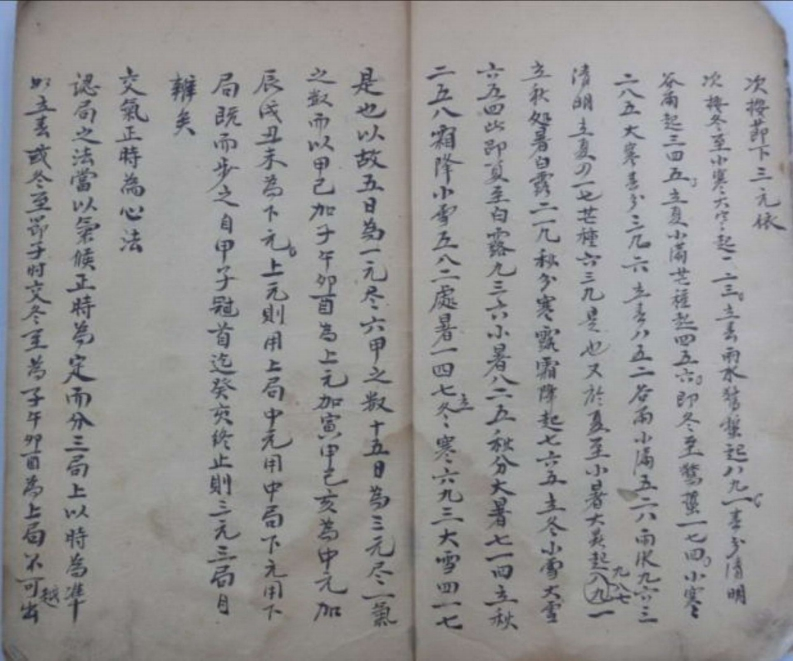 次接節下三元依
次接冬至小寒大寒起一二三立春雨水驚蟄起八九一春分清明
谷雨起三四五立夏小滿芒種起四五六即冬至驚蟄一七四小寒
二八五大寒春分三九六立春八五二谷雨小滿五二八雨水九六三
清明立夏四一七芒種六三九是也又於夏至小暑大暑起八九一
九八七
立秋処暑白露二一九秋分寒露霜降起七六五立冬小雪大雪
六五四此即夏至白露九三六小暑八二五秋分大暑七一四立秋
二五八霜降小雪五八二處暑一四七立冬寒六九三大雪四一七
是也以故五日為一元尽六甲之数十五日為三元尽一氣
之数而以甲己加子午卯酉為上元加寅申巳亥為中元加
辰戌丑未為下元上元則用上局中元用中局下元用下
局既而步之自甲子冠首迄癸亥終止則三元三局自
辨矣
交氣正時為心法
認局之法當以氣候正時為定而分三局上以時為準
如立春或冬至節子时交冬至為子午卯酉為上局不可越出